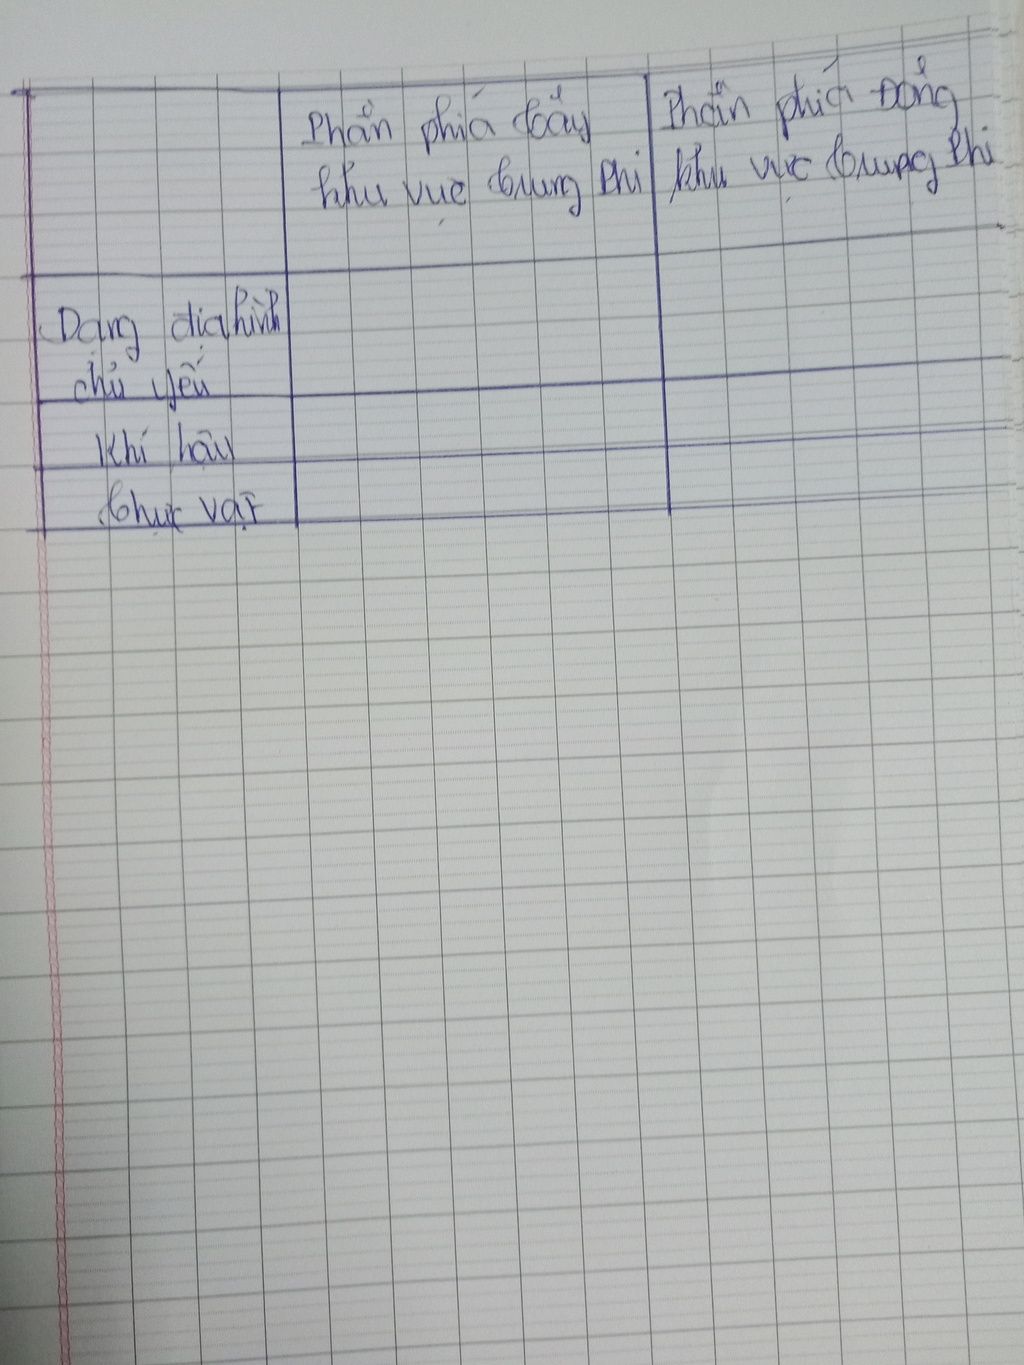 Phần phía tây
khu vực trung phi
Phần phía Đông
khu vực trung phi
Dạng địa hình
chủ yếu
Khí hậu
thực vật